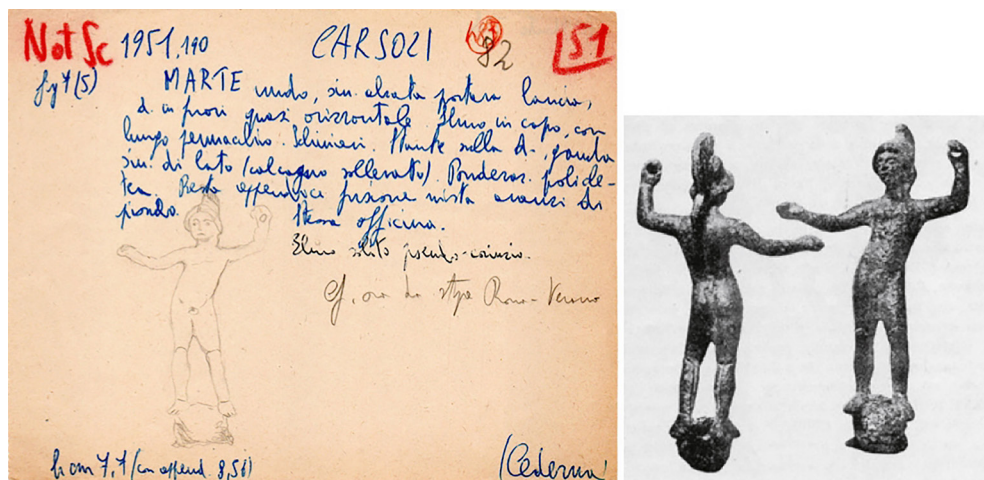 Not Sc 1951, 190 CARSOLI 82 151
fig 7 (5) MARTE nudo, sin. alzata portava lancia,
d. in fuori quasi orizzontale. Elmo in capo, con
lungo pennacchio. Schinieri. Stante sulla d., gamba
sin. di lato (calcagno sollevato). Ponderaz. policle-
tea. Resto appendice fusione mista avanzi di
piombo. Stessa officina.
Elmo solito pseudo-corinzio.
Cf. ora da stipe Roma-
h cm 7,7 (con append. 8,56)
(Cederna)